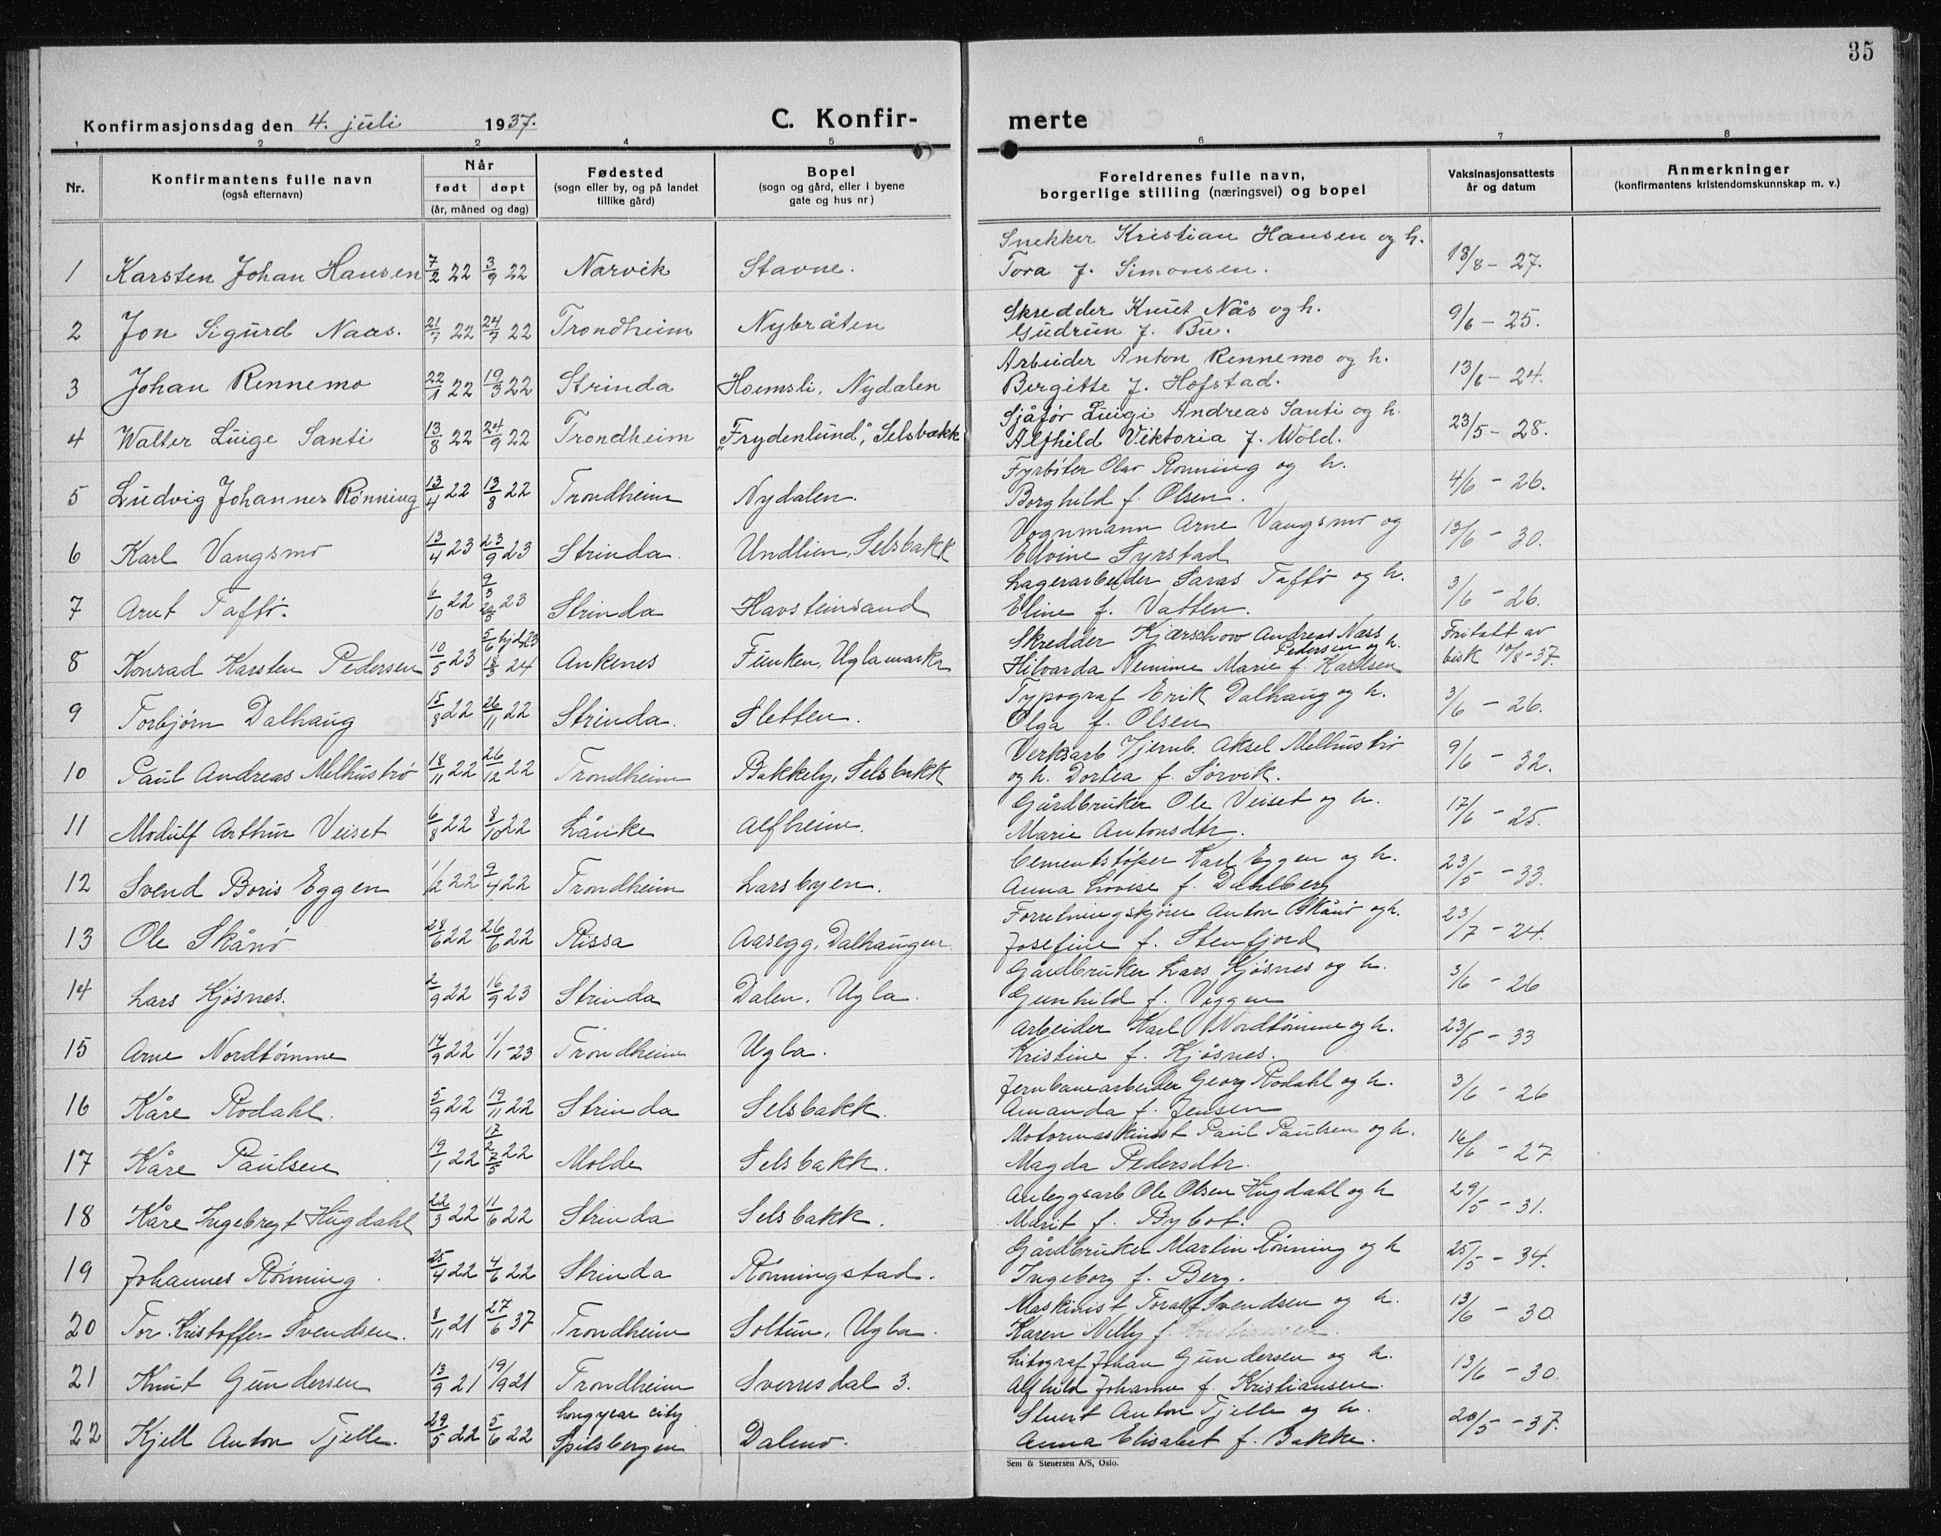 35
Konfirmasjonsdag den 4. juli 1937. C. Konfir- merte
1 2 2 4 5 6 7 8
Nr. Konfirmantens fulle navn (også efternavn) Når født døpt (år, måned og dag) Fødested (sogn eller by, og på landet tillike gård) Bopel (sogn og gård, eller i byene gate og hus nr) Foreldrenes fulle navn, borgerlige stilling (næringsvei) og bopel Vaksinasjonsattests år og datum Anmerkninger (konfirmantens kristendomskunnskap m. v.)
Snekker Kristian Hansen og h.
1 Karsten Johan Hansen 7/2 22 3/9 22 Narvik Stavne. Tora f. Simonsen. 18/8 - 27.
Skredder Knut Nås og h.
2 Jon Sigurd Naas. 21/7 22 24/7 22 Trondheim Nybråten Gudrun f. Bu. 9/6 - 25.
Arbeider Anton Rennemo og h.
3 Johan Rennemo 22/1 22 19/3 22 Strinda Hoemsli, Nydalen Bergitte f. Hofstad. 13/6 - 24.
Sjåfør Luigi Andreas Santi og h.
4 Walter Luige Santi 13/8 22 24/9 22 Trondheim „Frydenlund", Selsbakk Alfhild Viktoria f. Wold. 23/5 - 28.
Fyrbøter Olav Rønning og h.
5 Ludvig Johannes Rønning 13/4 22 13/8 22 Trondheim Nydalen. Borghild f. Olsen. 4/6 - 26.
Vognmann Arne Vangsmo og
6 Karl Vangsmo 13/4 23 23/9 23 Strinda. Undlien, Selsbakk Edvine Syrstad 13/6 - 30.
Lagerarbeider Taftø og h.
7 Arnt Taftø. 6/10 22 23 Strinda Havsteinsand Eline f. Vatten. 3/6 - 26.
Skredder Kjærschow Andreas Næss
Pedersen og h.
8 Konrad Karsten Pedersen 10/5 23 5/6 hjd. 23 18/3 24 Ankenes Funken, Uglamarka Hilvarda Marie f. Karlsen Fritatt av bisk 10/8-37.
Typograf Erik Dalhaug og h.
9 Torbjørn Dalhaug 15/8 22 26/11 22 Strinda. Sletten. Olga f. Olsen 3/6 - 26.
Verksarb Jernb. Aksel Melhustrø
10 Paul Andreas Melhustrø 18/11 22 26/12 22 Trondheim Bakkely, Selsbakk og h. Dortea f. Sørvik. 9/6 - 32.
Gårdbruker Ole Veiset og h.
11 Modulf Arthur Veiset 6/8 22 8/10 22 Lånke Alfheim. Marie Antonsdtr. 17/6 - 25.
Cementstøper Karl Eggen og h.
12 Svend Boris Eggen 1/2 22 9/4 22 Trondheim Larsbyen. Anna Lovise f. Dahlberg 23/5 - 33.
Forretningskjører Anton Skånø og h.
13 Ole Skånø 28/6 22 26/6 22 Rissa Aasegg, Dalhaugen Josefine f. Stenfjord 23/7 - 24.
Gårdbruker Lars Kjøsnes og h.
14 Lars Kjøsnes. 2/9 22 16/9 23 Strinda Dalen, Ugla. Gunhild f. Viggen 3/6 - 26
Arbeider Karl Nordtømme og h.
15 Arne Nordtømme 14/9 22 1/1-23 Trondheim Ugla. Kristine f. Kjøsnes. 23/5 - 33
Jernbanearbeider Georg Rodahl og h.
16 Kåre Rodahl. 5/9 22 19/11 22 Strinda Selsbakk. Amanda f. Jensen 3/6 - 26
Motormaskinist Paul Paulsen og h.
17 Kåre Paulsen 19/1 22 22 Molde Selsbakk. Magda Pedersdtr. 16/6 - 27
Anleggsarb Ole Olsen Hugdahl og h
18 Kåre Ingebregt Hugdahl 22/3 22 11/6 22 Strinda Selsbakk. Marit f. Bybot. 29/5 - 31.
Gårdbruker Martin Rønning og h
19 Johannes Rønning. 25/4 22 4/6 22 Strinda Rønningstad. Ingeborg f. Berg. 25/5 - 34.
Maskinist Toralf Svendsen og h.
20 Tor Kristoffer Svendsen. 8/11 21 27/6 37 Trondheim Soltun, Ugla. Karen Nelly f. 13/6 - 30
Litograf Johan Gundersen og h.
21 Knut Gundersen 13/9 21 19/9 21 Trondheim Sverresdal 3. Alfhild Johanne f. Kristiansen. 13/6 - 30.
Longyear city Stuert Anton Tjelle og h.
22 Kjell Anton Tjelle. 29/5 22 5/6 22 Spitsbergen Dalmo. Anna Elisabet f. Bakke. 20/5 - 37.
Sem & Stenersen A/S, Oslo.